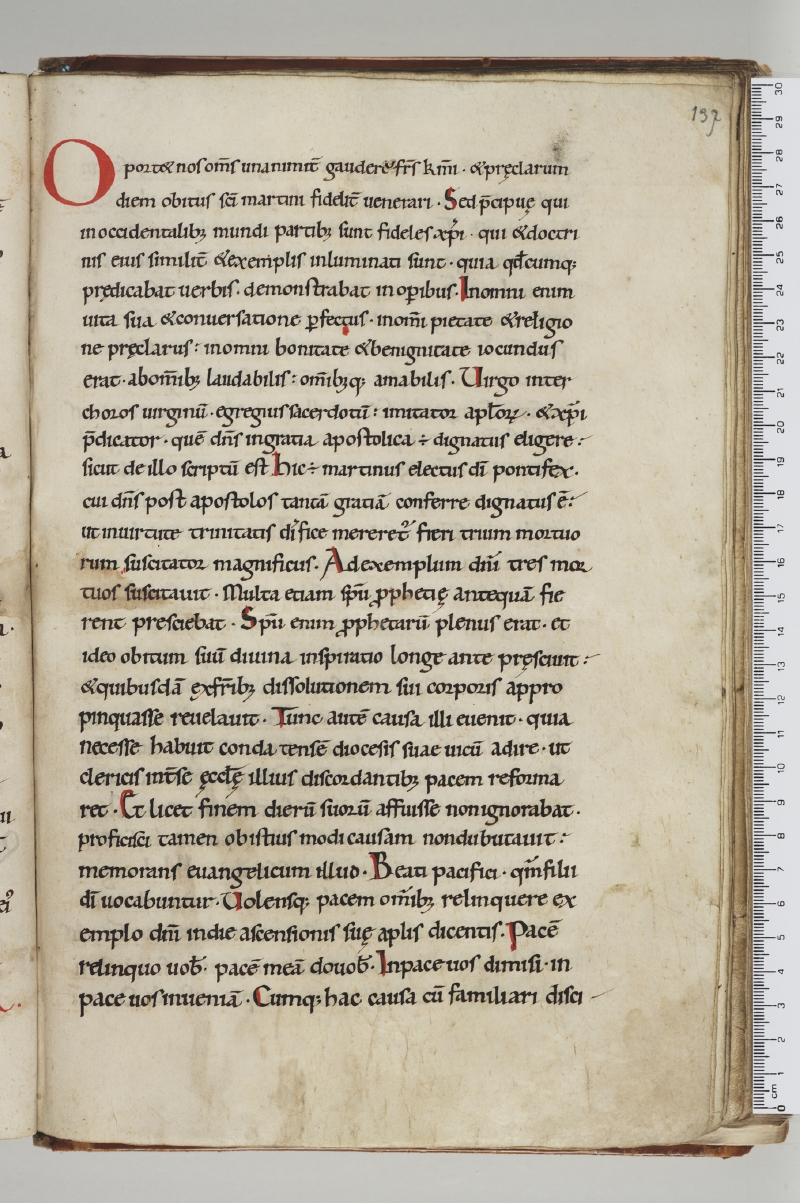 137
Oport&nosom̄s unanimit̄ gaudere&fr̄s km̄i · &pręclarum
diem obitus sc̄i martini fidelit̄ uenerari · Sed p̄cipuę qui
inoccidentalib; mundi partib; sunt fideles xp̄i · qui &doctri
nis eius similit̄ &exemplis inluminati sunt · quia qd̄cumq;
prędicabat uerbis · demonstrabat inoperibus · Inomni enim
uita sua &conuersatione ꝑfectus · inom̄i pietate &religio
ne pręclarus : inomni bonitate &benignitate iocundus
erat · abom̄ib; laudabilis : om̄ibq; amabilis · Uirgo inter
choros uirginū · egregiussacerdotū : imitator apl̄oꝝ · &xp̄i
p̄dicator · quē dn̄s ingratia apostolica ÷ dignatus eligere :
sicut de illo scriptū est hic÷ martinus electus dī pontifex ·
cui dn̄s post apostolos tantā gratiā conferre dignatus ē :
ut inuirtute trinitatis dīfice mereret᷑ fieri trium mortuo
rum suscitator magnificus · Adexemplum dn̄i tres mor
tuos suscitauit · Multa etiam sp̄u ꝓphetię antequā fie
rent presciebat · Sp̄u enim ꝓphetarū plenus erat · et
ideo obitum suū diuina inspiratio longe ante pręsciuit :
&quibusdā exfr̄ib; dissolutionem sui corporis appro
pinquasse reuelauit · Tunc autē causa illi euenit · quia
necesse habuit conda tensē diocesis suae uicū adire · ut
clericis int̄se ęccl̄ę illius discordantib; pacem reforma
ret · Et licet finem dierū suorū affuisse nonignorabat ·
proficisci tamen obistius modi causam nondubutauit :
memorans euangelicum illud · Beati pacifici · qm̄filii
dī uocabuntur · Uolensq; pacem om̄ib; relinquere ex
emplo dn̄i indie ascensionis suę aplis dicentis · Pacē
relinquo uob̄ · pacē meā douob̄ · Inpace uos dimisi · in
pace uosinueniā · Cumq; hac causa cū familiari disci